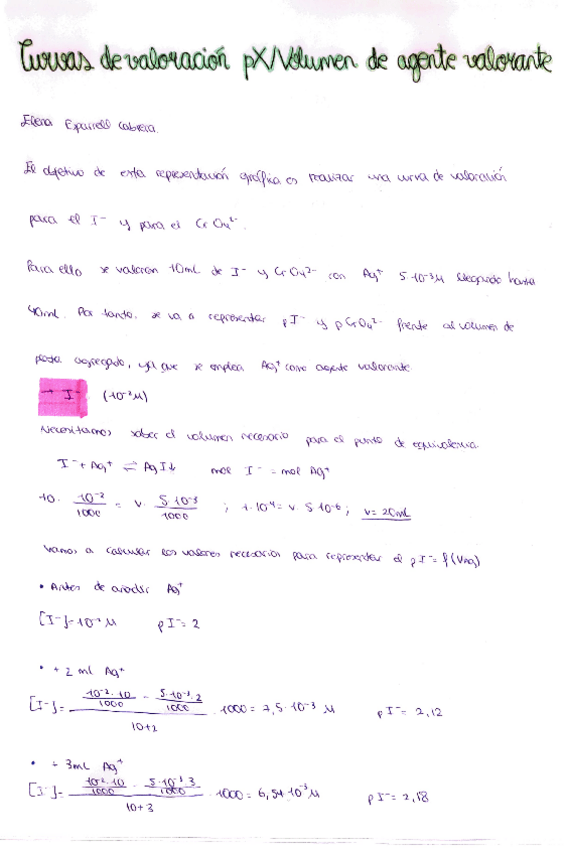 Curvas de valoración pX/Volumen de agente valorante
Elena Esparrell Cabrera.
El objetivo de esta representación gráfica es realizar una curva de valoración
para el I⁻ y para el CrO₄²⁻.
Para ello se valoran 10mL de I⁻ y CrO₄²⁻ con Ag⁺ 5·10⁻³M llegando hasta
40ml. Por tanto, se va a representar pI⁻ y pCrO₄²⁻ frente al volumen de
plata agregado, ya que se emplea Ag⁺ como agente valorante
→ I⁻ (10⁻²M)
Necesitamos saber el volumen necesario para el punto de equivalencia.
I⁻ + Ag⁺ ⇌ AgI↓ mol I⁻ = mol Ag⁺
10 · 10⁻²/1000 = V · 5·10⁻³/1000 ; 1·10⁻⁴ = V · 5·10⁻⁶ ; V = 20mL
Vamos a calcular los valores necesarios para representar el pI⁻ = f(VAg)
• Antes de añadir Ag⁺
[I⁻]=10⁻² M pI⁻ = 2
• + 2 ml Ag⁺
[I⁻] = (10⁻²·10/1000 − 5·10⁻³·2/1000)/(10+2) · 1000 = 7,5·10⁻³ M pI⁻ = 2,12
• + 3mL Ag⁺
[I⁻] = (10⁻²·10/1000 − 5·10⁻³·3/1000)/(10+3) · 1000 = 6,54·10⁻³M pI⁻ = 2,18